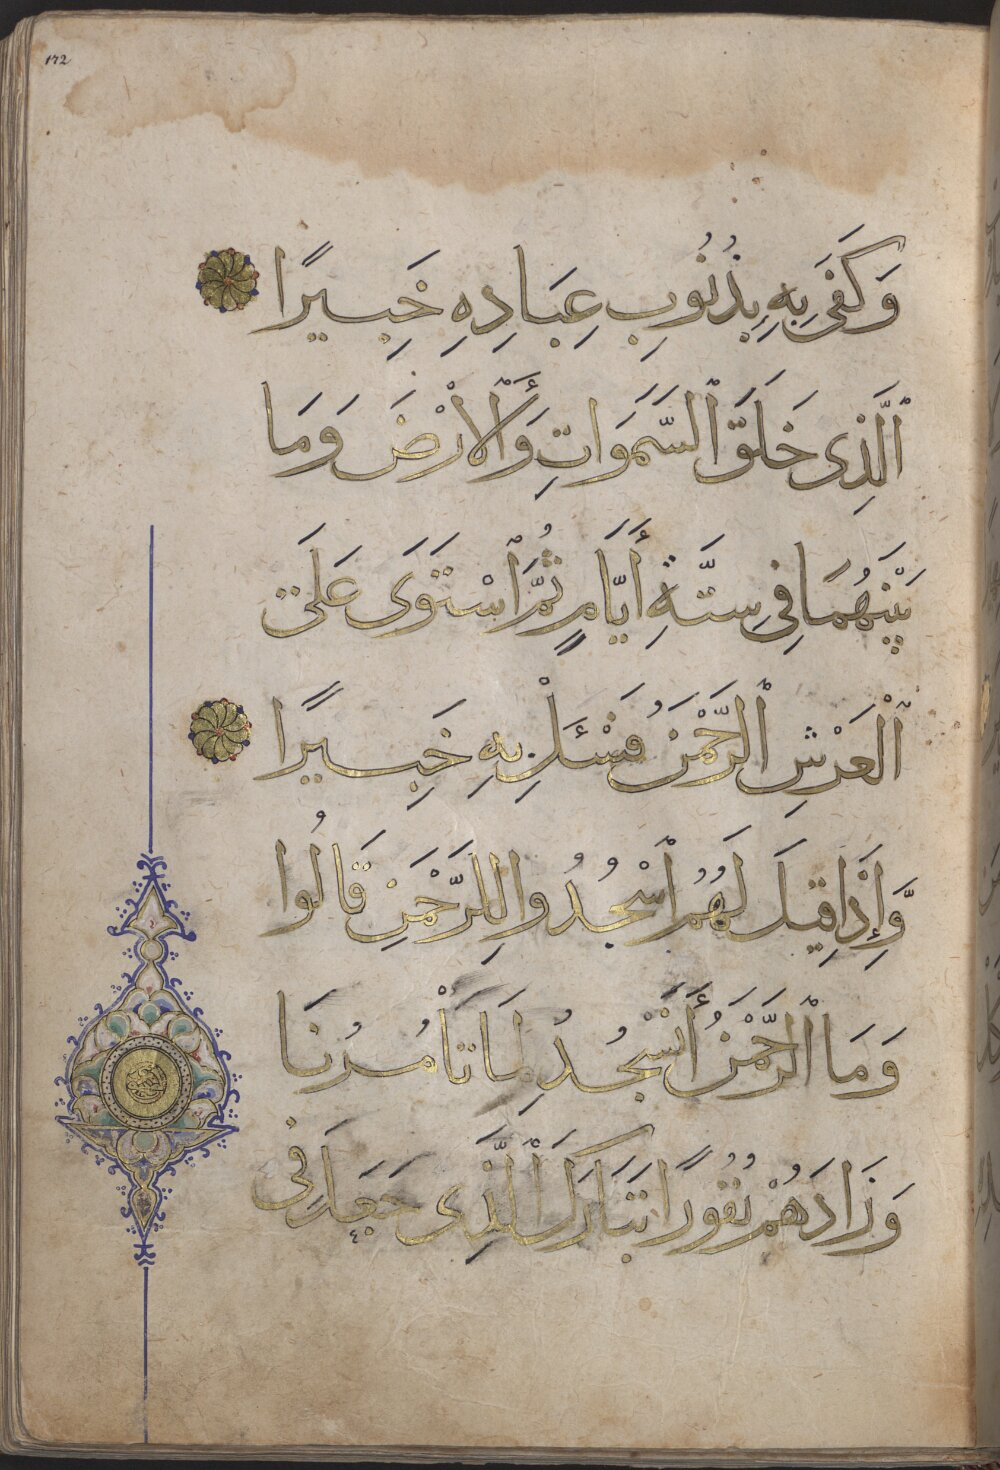 ١٧٢
وَكَفَىٰ بِهِ بِذُنُوبِ عِبَادِهِ خَبِيرًا
ٱلَّذِى خَلَقَ ٱلسَّمَوَاتِ وَٱلْأَرْضَ وَمَا
بَيْنَهُمَا فِى سِتَّةِ أَيَّامٍ ثُمَّ ٱسْتَوَى عَلَى
ٱلْعَرْشِ ٱلرَّحْمَنُ فَسْئَلْ بِهِ خَبِيرًا
وَّإِذَا قِيلَ لَهُمُ ٱسْجُدُوا لِلرَّحْمَنِ قَالُوا
وَمَا ٱلرَّحْمَنُ أَنَسْجُدُ لِمَا تَأْمُرُنَا
وَزَادَهُمْ نُفُورًا تَبَارَكَ ٱلَّذِى جَعَلَ فِى